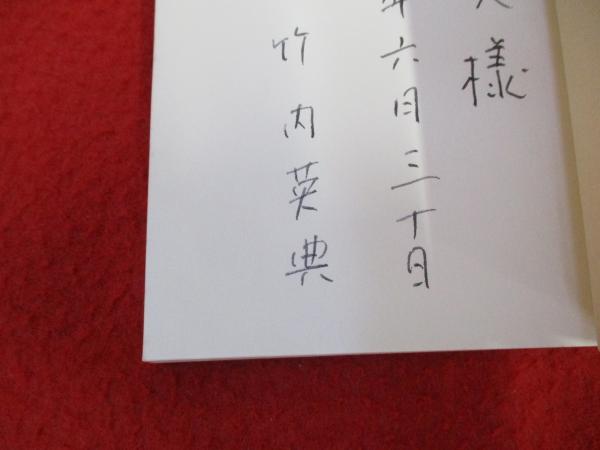 様
年六月三十日
竹内英典